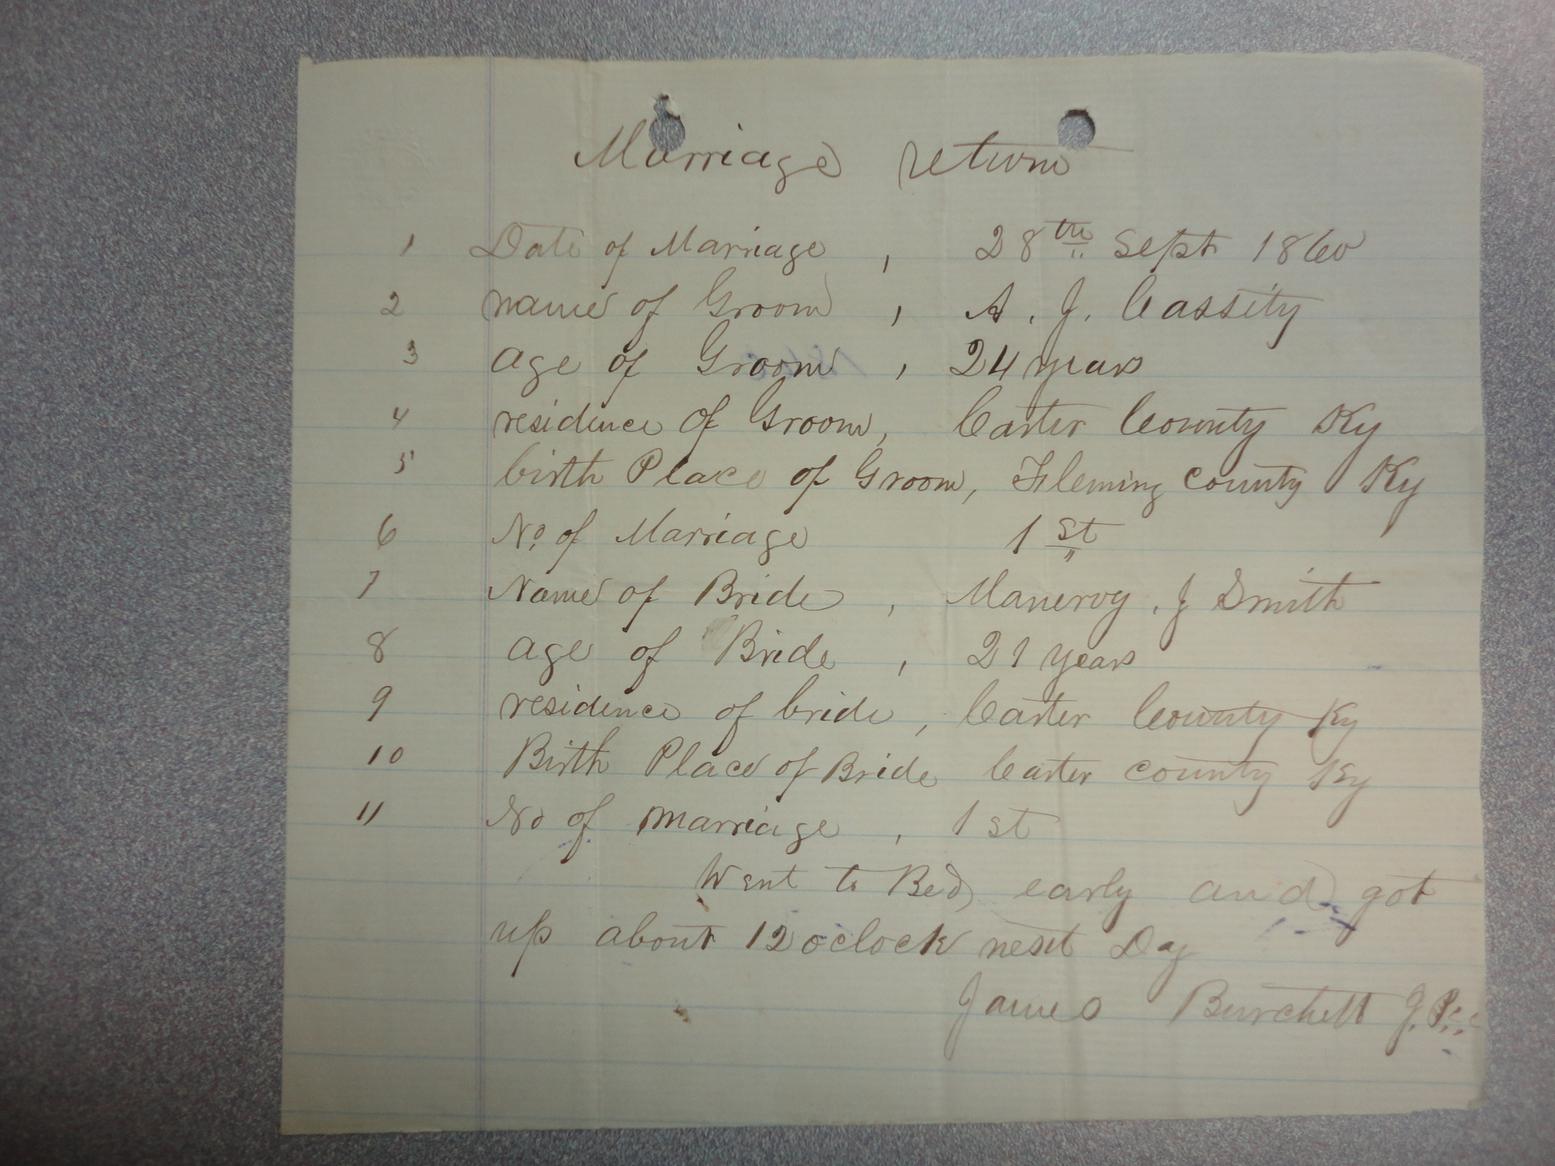 Marriage return
1 Date of Marriage , 28th Sept 1860
2 name of Groom , A. J. Cassity
3 age of Groom , 24 years
4 residence of Groom, Carter County Ky
5 birth Place of Groom, Fleming County Ky
6 No. of Marriage 1st
7 Name of Bride , Manervy . J Smith
8 age of Bride , 21 years
9 residence of bride , Carter County Ky
10 Birth Place of Bride Carter county Ky
11 No of marriage , 1st
Went to Bed early and got
up about 12 oclock next Day
James Burchett J.P.